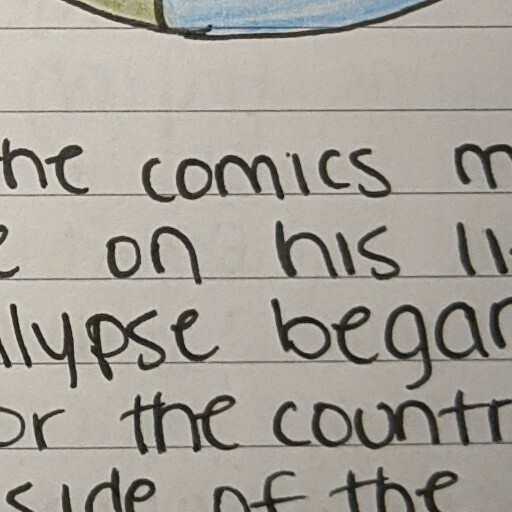 he comics m
e on his li
lypse began
or the countr
side of the